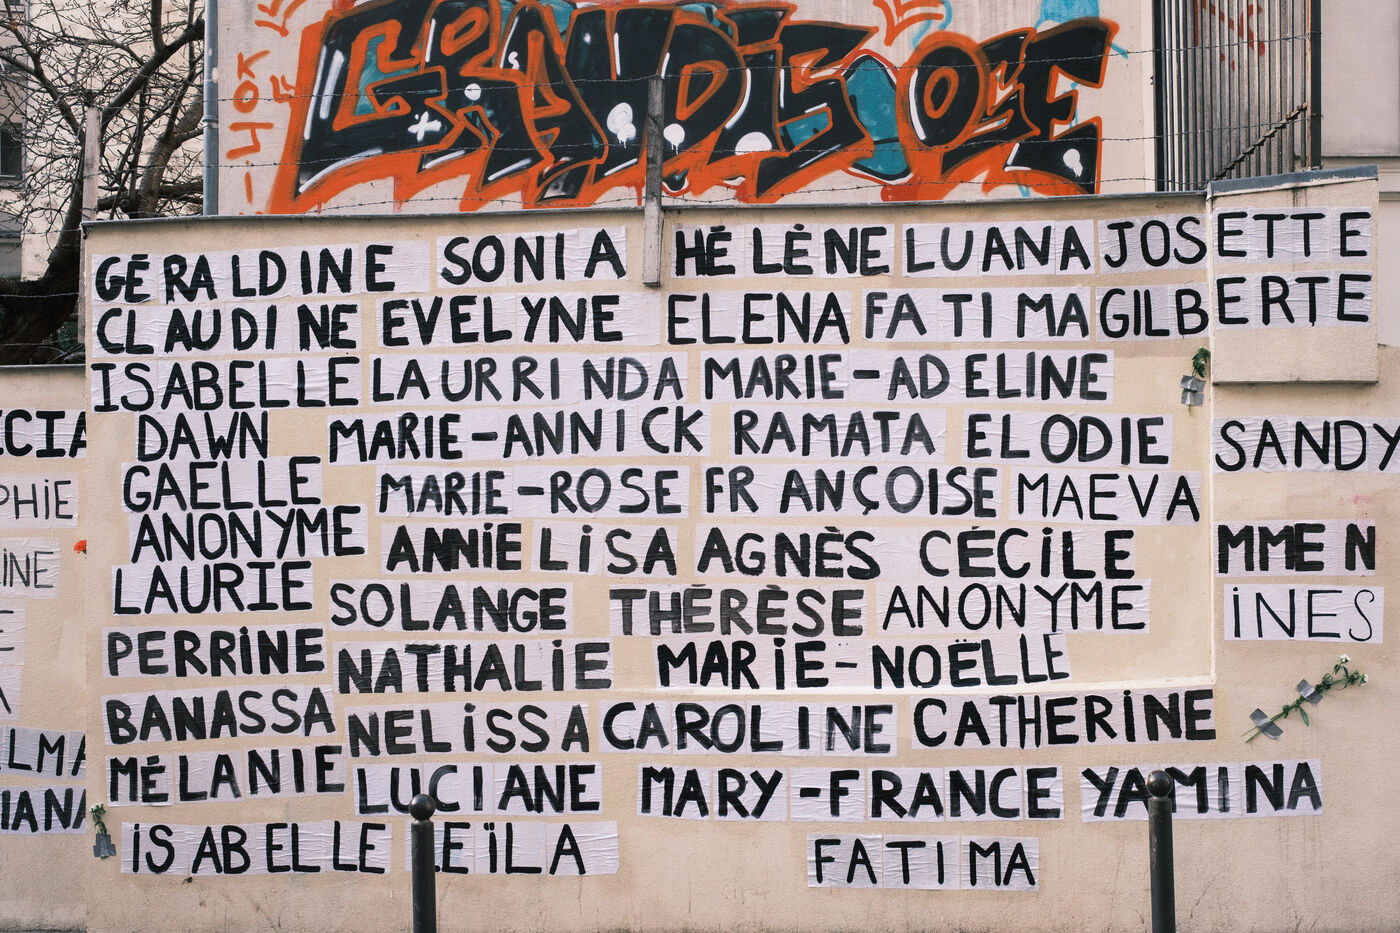 GRANDIS OSE
GÉRALDINE SONIA HÉLÈNE LUANA JOSETTE
CLAUDINE EVELYNE ELENA FATIMA GILBERTE
ISABELLE LAURRINDA MARIE-ADELINE
DAWN MARIE-ANNICK RAMATA ELODIE SANDY
GAELLE MARIE-ROSE FRANÇOISE MAEVA
ANONYME ANNIE LISA AGNÈS CÉCILE MMEN
LAURIE SOLANGE THÉRÈSE ANONYME INES
PERRINE NATHALIE MARIE-NOËLLE
BANASSA NELISSA CAROLINE CATHERINE
MÉLANIE LUCIANE MARY-FRANCE YAMINA
ISABELLE LEÏLA FATIMA
CIA
PHIE
INE
LMA
IANA